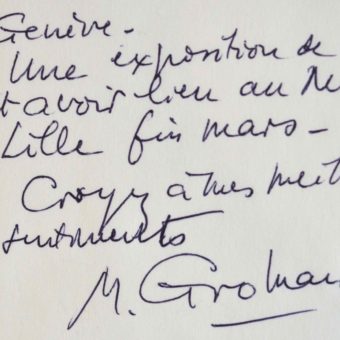 Genève -
Une exposition de
t avoir lieu au M
Lille fin mars -
Croyez à mes meil
sentiments
M. Gromai